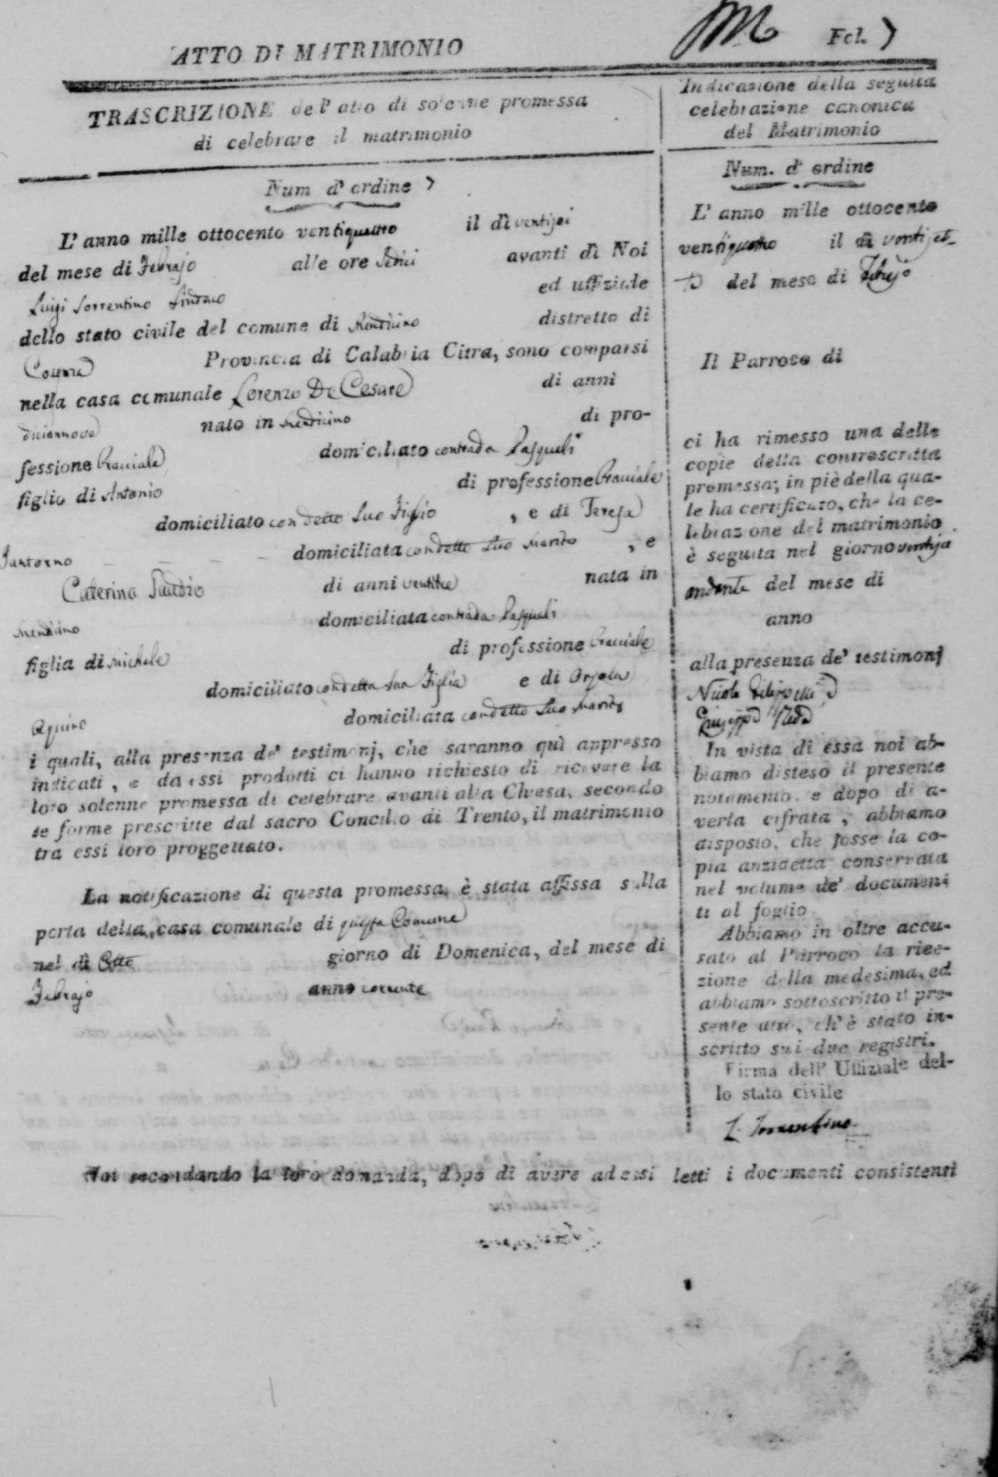 ATTO DI MATRIMONIO
Fol. 7
TRASCRIZIONE dell' atto di solenne promessa
di celebrare il matrimonio
Num d' ordine 7
L' anno mille ottocento ventiquattro il dì ventisei
del mese di Febrajo alle ore sedici avanti di Noi
Luigi Sorrentino Sindaco ed uffiziale
dello stato civile del comune di Mendicino distretto di
Cosenza Provincia di Calabria Citra, sono comparsi
nella casa comunale Lorenzo De Cesare di anni
diciannove nato in Mendicino di pro-
fessione Bracciale domiciliato contrada Pasquali
figlio di Antonio di professione Bracciale
domiciliato con detto Suo Figlio , e di Teresa
Santorno domiciliata con detto Suo Marito , e
Caterina Gaudio di anni ventitre nata in
Mendicino domiciliata contrada Pasquali
figlia di Michele di professione Bracciale
domiciliato con detta Sua Figlia e di Orsola
Aquino domiciliata con detto Suo Marito
i quali, alla presenza de' testimonj, che saranno quì appresso
indicati, e da essi prodotti ci hanno richiesto di ricevere la
loro solenne promessa di celebrare avanti alla Chiesa, secondo
le forme prescritte dal sacro Concilio di Trento, il matrimonio
tra essi loro proggettato.
La notificazione di questa promessa, è stata affissa sulla
porta della casa comunale di questa Comune
nel dì Otto giorno di Domenica, del mese di
Febrajo anno corrente
Indicazione della seguita
celebrazione canonica
del Matrimonio
Num. d' ordine
L' anno mille ottocento
ventiquattro il dì ventiset-
te del mese di Febrajo
Il Parroco di
ci ha rimesso una delle
copie della controscritta
promessa; in piè della qua-
le ha certificato, che la ce-
lebrazione del matrimonio
è seguita nel giorno ventisei
andante del mese di
anno
alla presenza de' testimonj
Nicola Filippelli
Giuseppe
In vista di essa noi ab-
biamo disteso il presente
notamento, e dopo di a-
verla cifrata, abbiamo
disposto, che fosse la co-
pia anzidetta conservata
nel volume de' documen
ti al foglio
Abbiamo in oltre accu-
sato al Parroco la rice-
zione della medesima, ed
abbiamo sottoscritto il pre-
sente atto, ch' è stato in-
scritto sui due registri.
Firma dell' Uffiziale del-
lo stato civile
L. Sorrentino
Noi secondando la loro domanda, dopo di avere ad essi letti i documenti consistenti